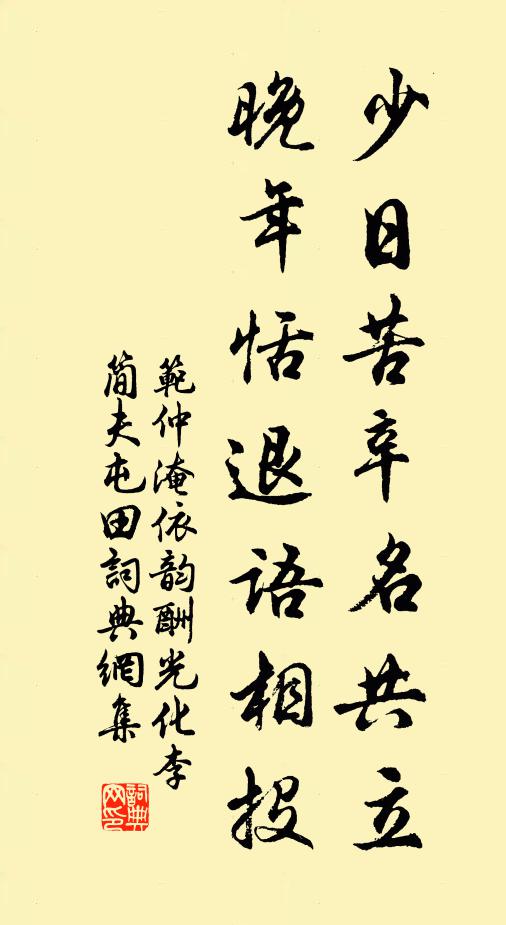 少日苦辛名共立
晚年恬退语相投
範仲淹依韵酬光化李
简夫屯田詞典網集
詞典
网印